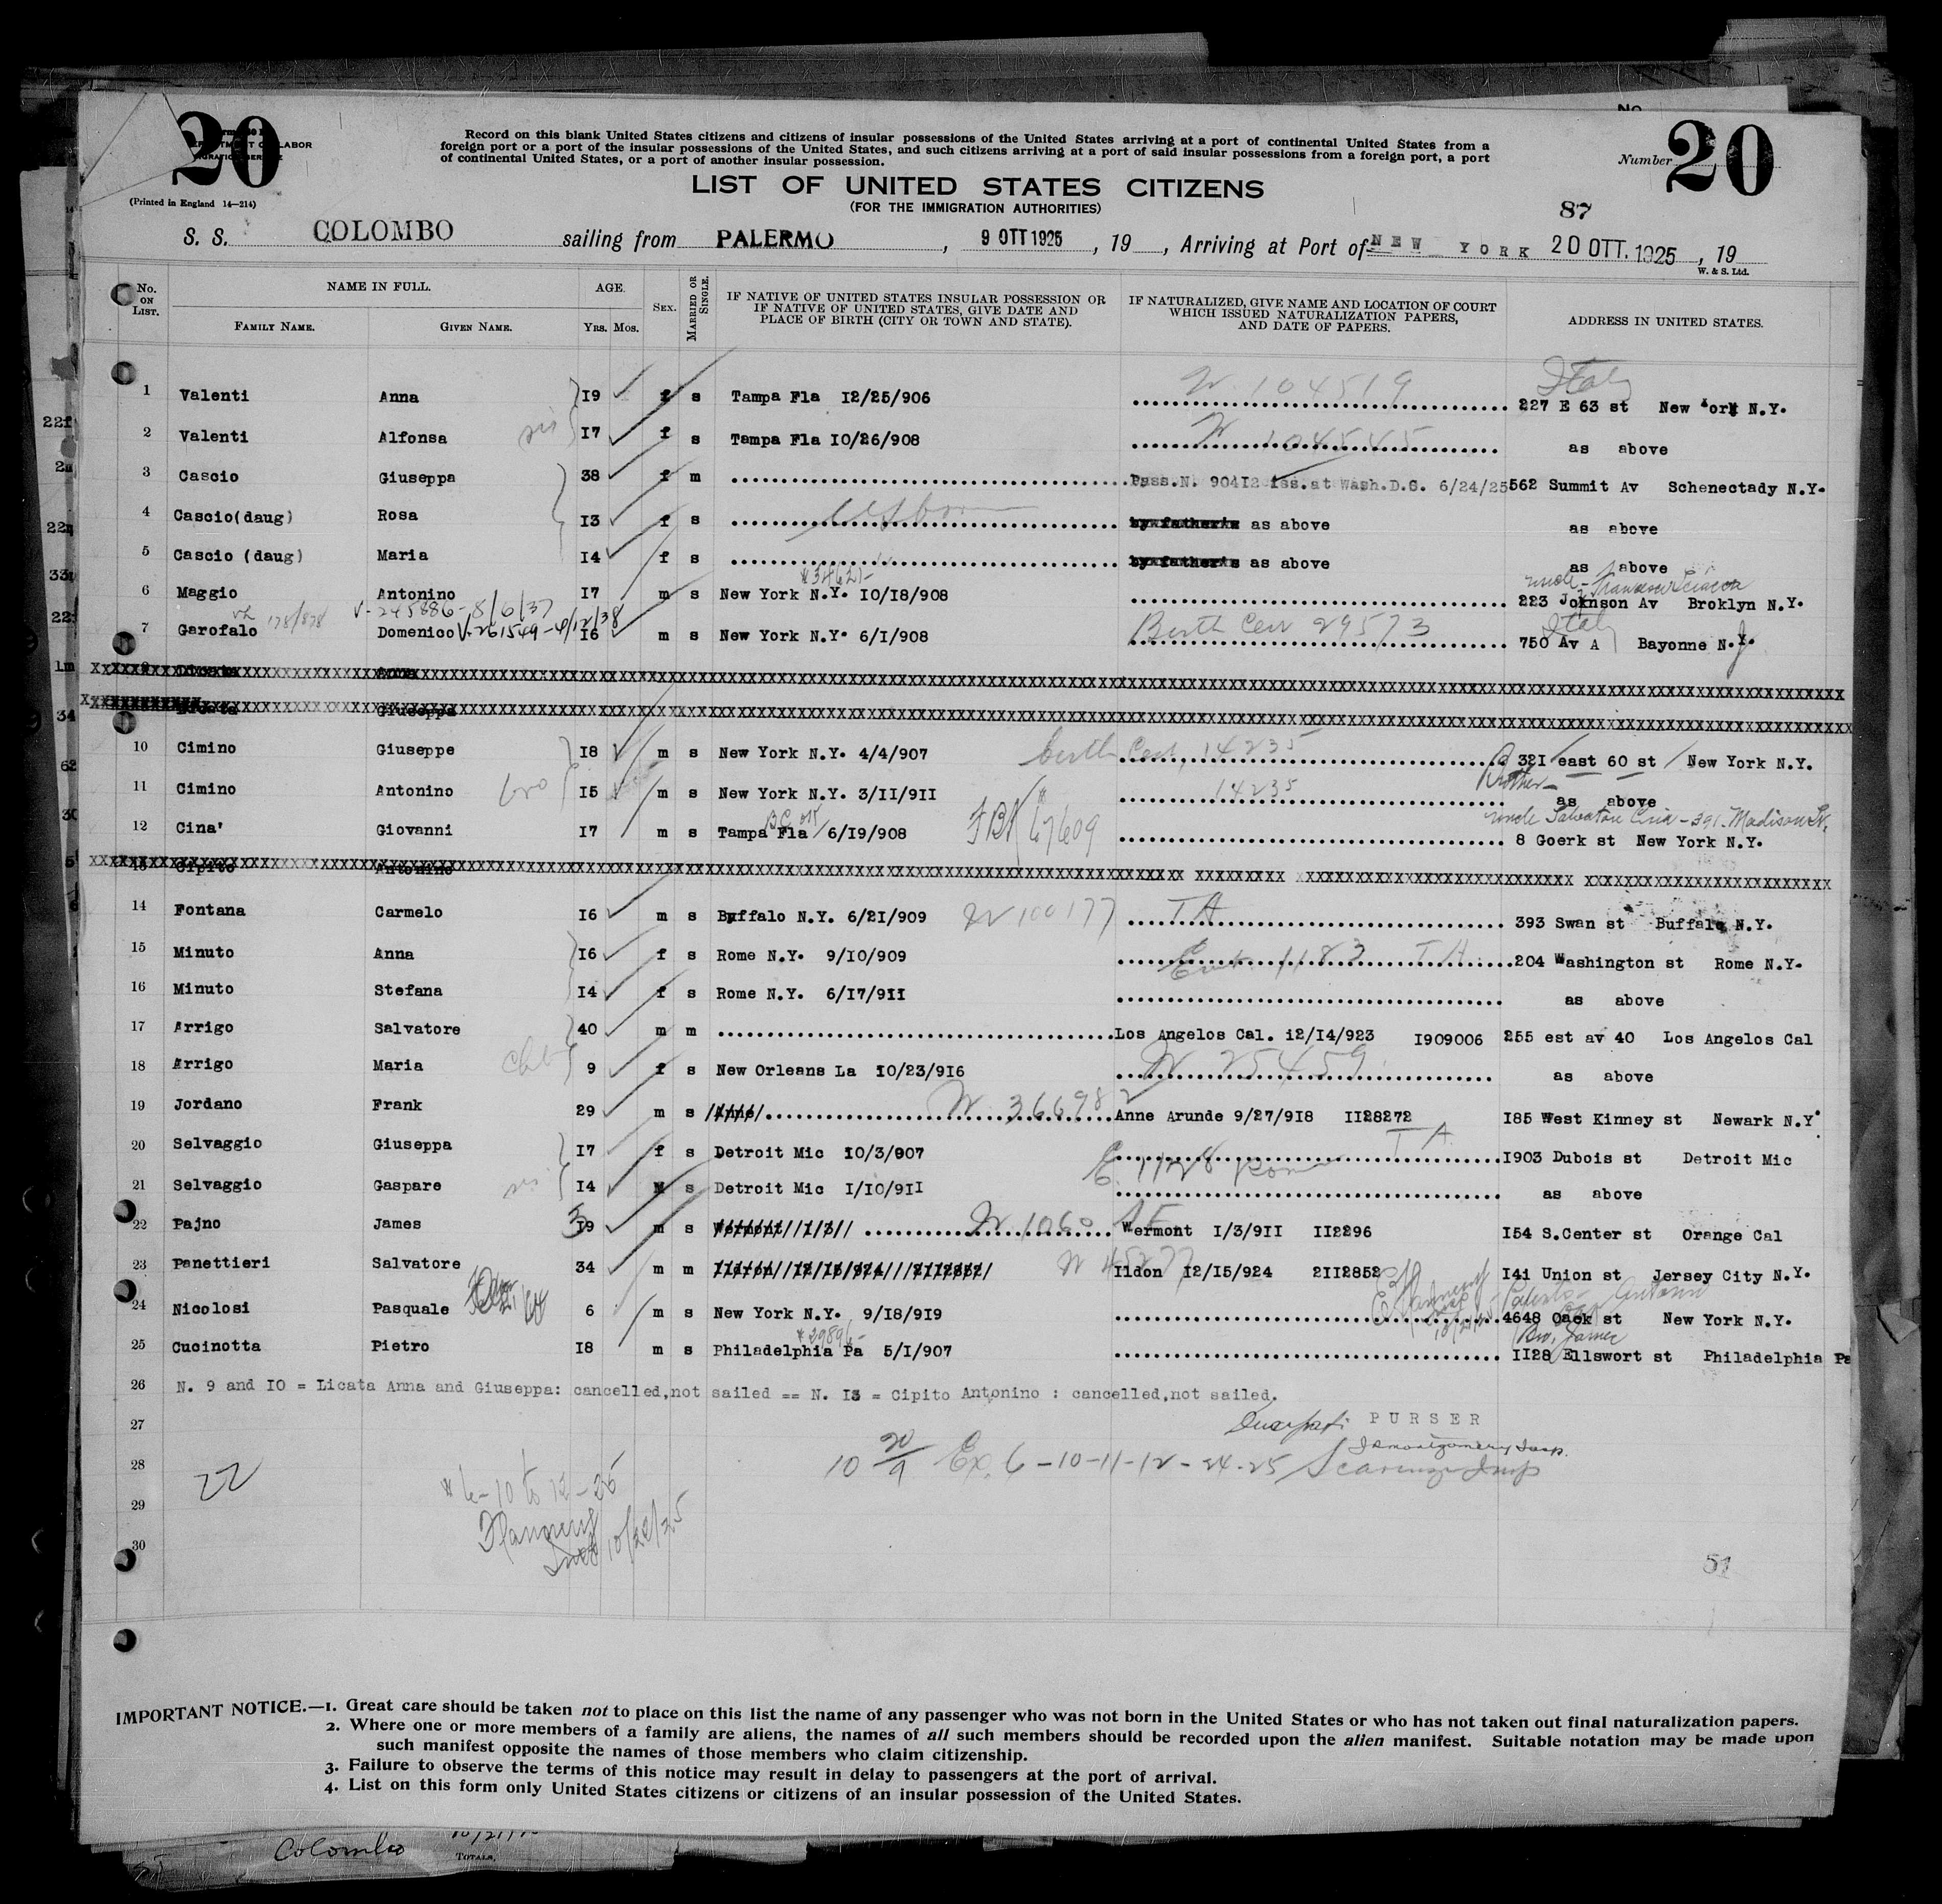 No.
20
LABOR
(Printed in England 14—214)
Record on this blank United States citizens and citizens of insular possessions of the United States arriving at a port of continental United States from a
foreign port or a port of the insular possessions of the United States, and such citizens arriving at a port of said insular possessions from a foreign port, a port
of continental United States, or a port of another insular possession.
Number 20
LIST OF UNITED STATES CITIZENS
(FOR THE IMMIGRATION AUTHORITIES)
87
S. S. COLOMBO sailing from PALERMO, 9 OTT 1925, 19, Arriving at Port of NEW YORK 20 OTT. 1925, 19
W. & S. Ltd.
No. ON LIST. NAME IN FULL. FAMILY NAME. GIVEN NAME. AGE. Yrs. Mos. SEX. MARRIED OR SINGLE. IF NATIVE OF UNITED STATES INSULAR POSSESSION OR IF NATIVE OF UNITED STATES, GIVE DATE AND PLACE OF BIRTH (CITY OR TOWN AND STATE). IF NATURALIZED, GIVE NAME AND LOCATION OF COURT WHICH ISSUED NATURALIZATION PAPERS, AND DATE OF PAPERS. ADDRESS IN UNITED STATES.
N. 104519 Italy
1 Valenti Anna I9 f s Tampa Fla I2/25/906 227 E 63 st New York N.Y.
2 Valenti Alfonsa sis I7 f s Tampa Fla I0/26/908 N 104545 as above
3 Cascio Giuseppa 38 f m Pass.N. 904I2 iss.at Wash.D.C. 6/24/25 562 Summit Av Schenectady N.Y.
4 Cascio(daug) Rosa I3 f s as above as above
5 Cascio (daug) Maria I4 f s as above as above
6 Maggio Antonino I7 m s New York N.Y. I0/18/908 223 Johnson Av Broklyn N.Y.
V-245886-8/6/37
7 Garofalo Domenico V-261549-4/12/38 I6 m s New York N.Y. 6/I/908 Birth Cer 29573 Italy 750 Av A Bayonne N.J.
Licata Anna
Licata Giuseppa
10 Cimino Giuseppe I8 m s New York N.Y. 4/4/907 birth Cert. 14235 32I east 60 st New York N.Y.
Brother
11 Cimino Antonino bro I5 m s New York N.Y. 3/II/9II 14235 as above
uncle Salvatore Cina - 391 Madison St.
12 Cina' Giovanni I7 m s Tampa Fla 6/19/908 67609 8 Goerk st New York N.Y.
13 Cipito Antonino
14 Fontana Carmelo I6 m s Buffalo N.Y. 6/2I/909 N 100177 TA 393 Swan st Buffalo N.Y.
15 Minuto Anna I6 f s Rome N.Y. 9/10/909 1183 TA 204 Washington st Rome N.Y.
16 Minuto Stefana I4 f s Rome N.Y. 6/17/9II as above
17 Arrigo Salvatore 40 m m Los Angelos Cal. i2/I4/923 I909006 255 est av 40 Los Angelos Cal
18 Arrigo Maria 9 f s New Orleans La I0/23/9I6 N 25459 as above
19 Jordano Frank 29 m s N. 366982 Anne Arunde 9/27/9I8 II28272 I85 West Kinney st Newark N.Y.
20 Selvaggio Giuseppa I7 f s Detroit Mic I0/3/907 TA I903 Dubois st Detroit Mic
21 Selvaggio Gaspare sis I4 M s Detroit Mic I/10/9II as above
22 Pajno James 39 m s N 1060 Wermont I/3/9II II2296 I54 S.Center st Orange Cal
23 Panettieri Salvatore 34 m m Ildon I2/I5/924 2II2852 I4i Union st Jersey City N.Y.
24 Nicolosi Pasquale 6 m s New York N.Y. 9/I8/9I9 4648 Oack st New York N.Y.
Bro. James
25 Cucinotta Pietro I8 m s Philadelphia Pa 5/I/907 II28 Ellswort st Philadelphia Pa
26 N. 9 and IO = Licata Anna and Giuseppa: cancelled,not sailed == N. I3 = Cipito Antonino : cancelled,not sailed.
27 PURSER
Montgomery Insp.
28 22 10 20/9 Ex. 6-10-11-12-24-25 Insp
* 6-10 to 12-25
29 Flannery
Insp 10/20/25
30
51
IMPORTANT NOTICE.—1. Great care should be taken not to place on this list the name of any passenger who was not born in the United States or who has not taken out final naturalization papers.
2. Where one or more members of a family are aliens, the names of all such members should be recorded upon the alien manifest. Suitable notation may be made upon
such manifest opposite the names of those members who claim citizenship.
3. Failure to observe the terms of this notice may result in delay to passengers at the port of arrival.
4. List on this form only United States citizens or citizens of an insular possession of the United States.
Colombo
TOTALS,